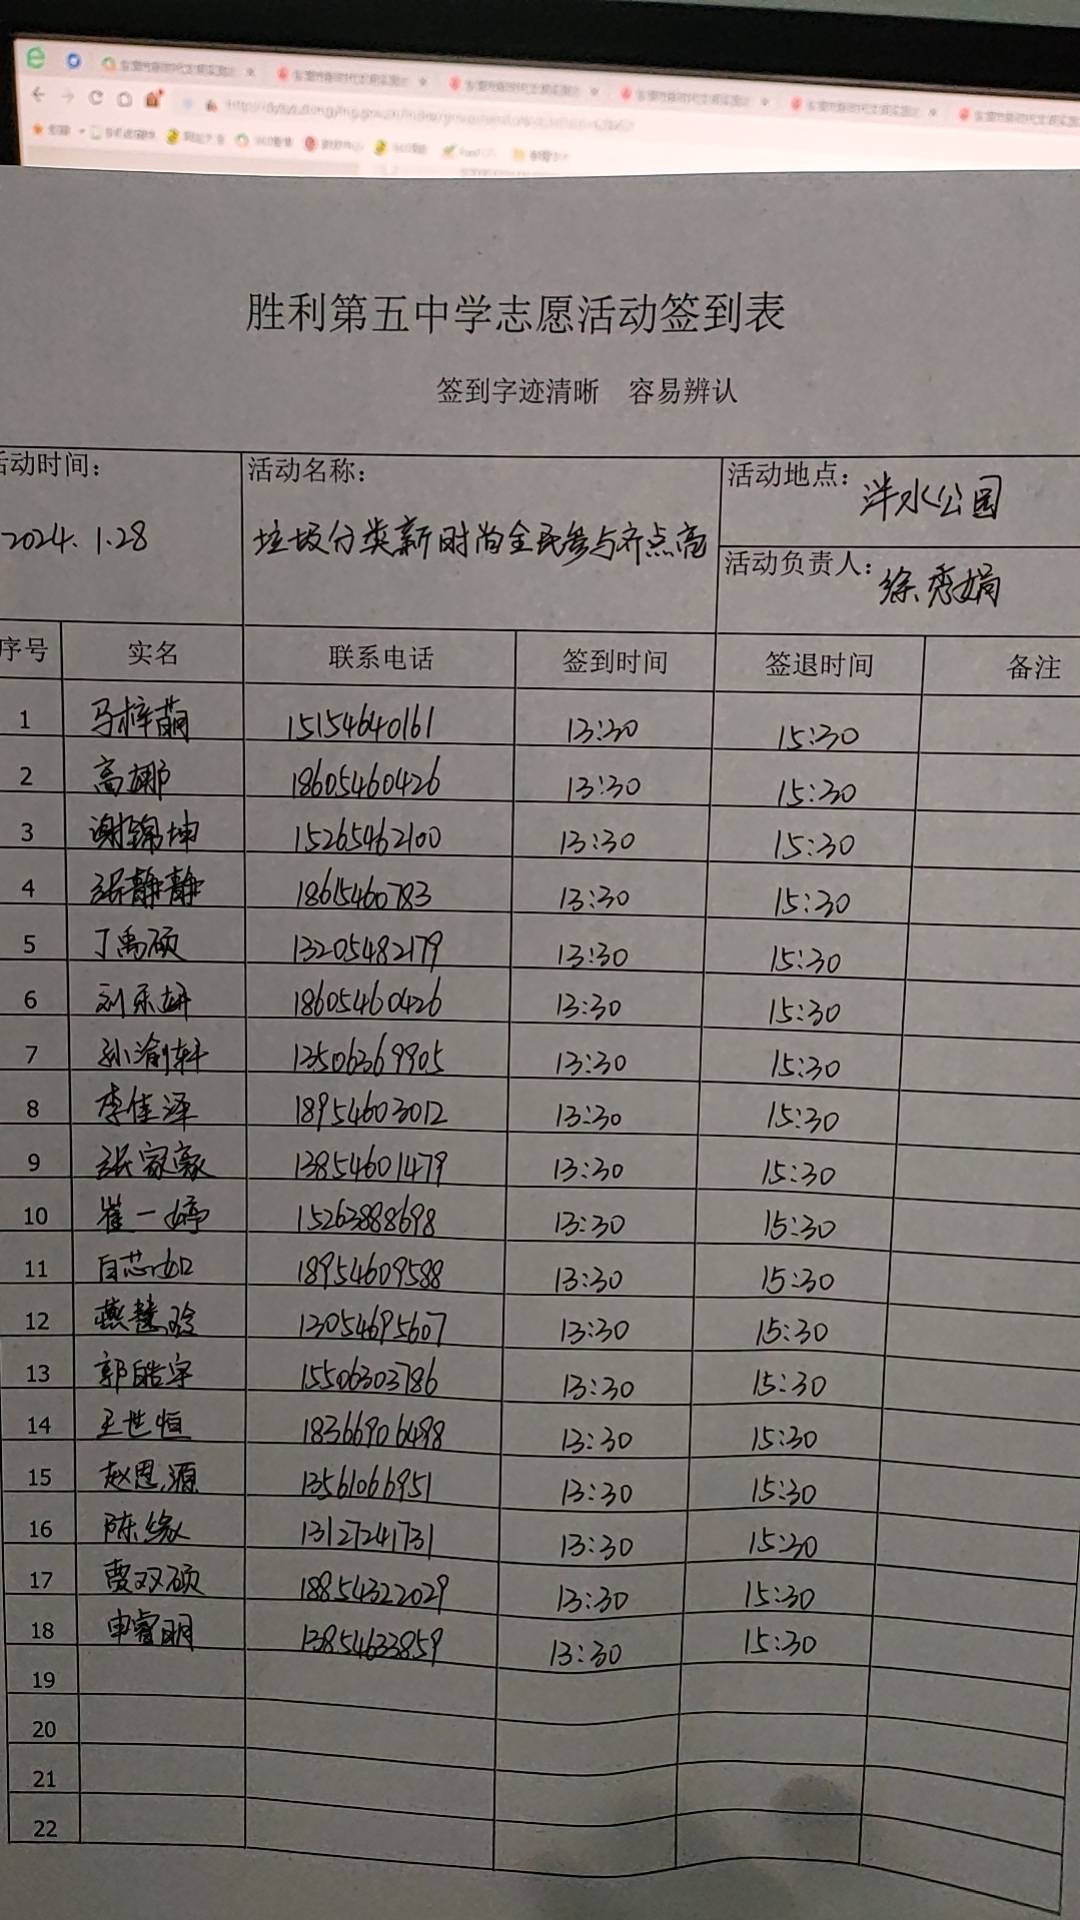 胜利第五中学志愿活动签到表
签到字迹清晰 容易辨认
活动时间: 活动名称: 活动地点: 泮水公园
2024.1.28 垃圾分类新时尚全民参与齐点亮
活动负责人: 徐秀娟
序号 实名 联系电话 签到时间 签退时间 备注
1 马梓萌 15154640161 13:30 15:30
2 高娜 18605460426 13:30 15:30
3 谢锦坤 15265462100 13:30 15:30
4 张静静 18615460783 13:30 15:30
5 丁禹硕 13205482179 13:30 15:30
6 刘乐妍 18605460426 13:30 15:30
7 孙渝轩 13506369905 13:30 15:30
8 李佳泽 18954603012 13:30 15:30
9 张家豪 13854601479 13:30 15:30
10 崔一婷 15263888698 13:30 15:30
11 白芯如 18954609588 13:30 15:30
12 燕慧玲 13054695607 13:30 15:30
13 郭皓宇 15506303786 13:30 15:30
14 王世恒 18366906498 13:30 15:30
15 赵思源 13561066951 13:30 15:30
16 陈缘 13127241731 13:30 15:30
17 贾双硕 18854322029 13:30 15:30
18 申睿明 13854633859 13:30 15:30
19
20
21
22